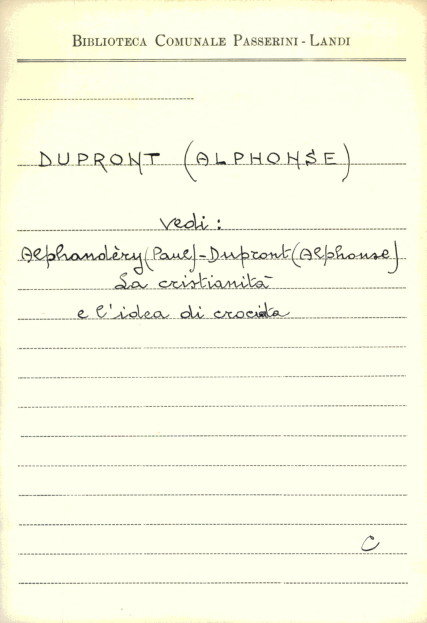 BIBLIOTECA COMUNALE PASSERINI - LANDI
DUPRONT (ALPHONSE)
vedi:
Alphandèry (Paul) - Dupront (Alphonse)
La cristianità
e l'idea di crociata
C